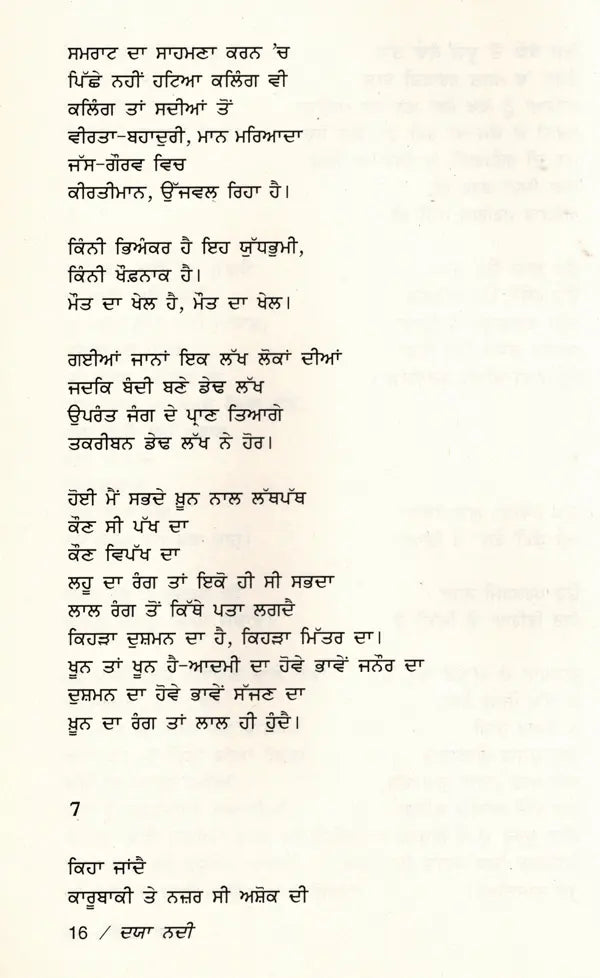 ਸਮਰਾਟ ਦਾ ਸਾਹਮਣਾ ਕਰਨ 'ਚ
ਪਿੱਛੇ ਨਹੀਂ ਹਟਿਆ ਕਲਿੰਗ ਵੀ
ਕਲਿੰਗ ਤਾਂ ਸਦੀਆਂ ਤੋਂ
ਵੀਰਤਾ-ਬਹਾਦੁਰੀ, ਮਾਨ ਮਰਿਆਦਾ
ਜੱਸ-ਗੌਰਵ ਵਿਚ
ਕੀਰਤੀਮਾਨ, ਉੱਜਵਲ ਰਿਹਾ ਹੈ।
ਕਿੰਨੀ ਭਿਅੰਕਰ ਹੈ ਇਹ ਯੁੱਧਭੁਮੀ,
ਕਿੰਨੀ ਖੌਫ਼ਨਾਕ ਹੈ।
ਮੌਤ ਦਾ ਖੇਲ ਹੈ, ਮੌਤ ਦਾ ਖੇਲ।
ਗਈਆਂ ਜਾਨਾਂ ਇਕ ਲੱਖ ਲੋਕਾਂ ਦੀਆਂ
ਜਦਕਿ ਬੰਦੀ ਬਣੇ ਡੇਢ ਲੱਖ
ਉਪਰੰਤ ਜੰਗ ਦੇ ਪ੍ਰਾਣ ਤਿਆਗੇ
ਤਕਰੀਬਨ ਡੇਢ ਲੱਖ ਨੇ ਹੋਰ।
ਹੋਈ ਮੈਂ ਸਭਦੇ ਖ਼ੂਨ ਨਾਲ ਲੱਥਪੱਥ
ਕੌਣ ਸੀ ਪੱਖ ਦਾ
ਕੌਣ ਵਿਪੱਖ ਦਾ
ਲਹੂ ਦਾ ਰੰਗ ਤਾਂ ਇਕੋ ਹੀ ਸੀ ਸਭਦਾ
ਲਾਲ ਰੰਗ ਤੋਂ ਕਿੱਥੇ ਪਤਾ ਲਗਦੈ
ਕਿਹੜਾ ਦੁਸ਼ਮਨ ਦਾ ਹੈ, ਕਿਹੜਾ ਮਿੱਤਰ ਦਾ।
ਖੂਨ ਤਾਂ ਖੂਨ ਹੈ-ਆਦਮੀ ਦਾ ਹੋਵੇ ਭਾਵੇਂ ਜਨੌਰ ਦਾ
ਦੁਸ਼ਮਨ ਦਾ ਹੋਵੇ ਭਾਵੇਂ ਸੱਜਣ ਦਾ
ਖ਼ੂਨ ਦਾ ਰੰਗ ਤਾਂ ਲਾਲ ਹੀ ਹੁੰਦੈ।
7
ਕਿਹਾ ਜਾਂਦੈ
ਕਾਰੂਬਾਕੀ ਤੇ ਨਜ਼ਰ ਸੀ ਅਸ਼ੋਕ ਦੀ
16 / ਦਯਾ ਨਦੀ